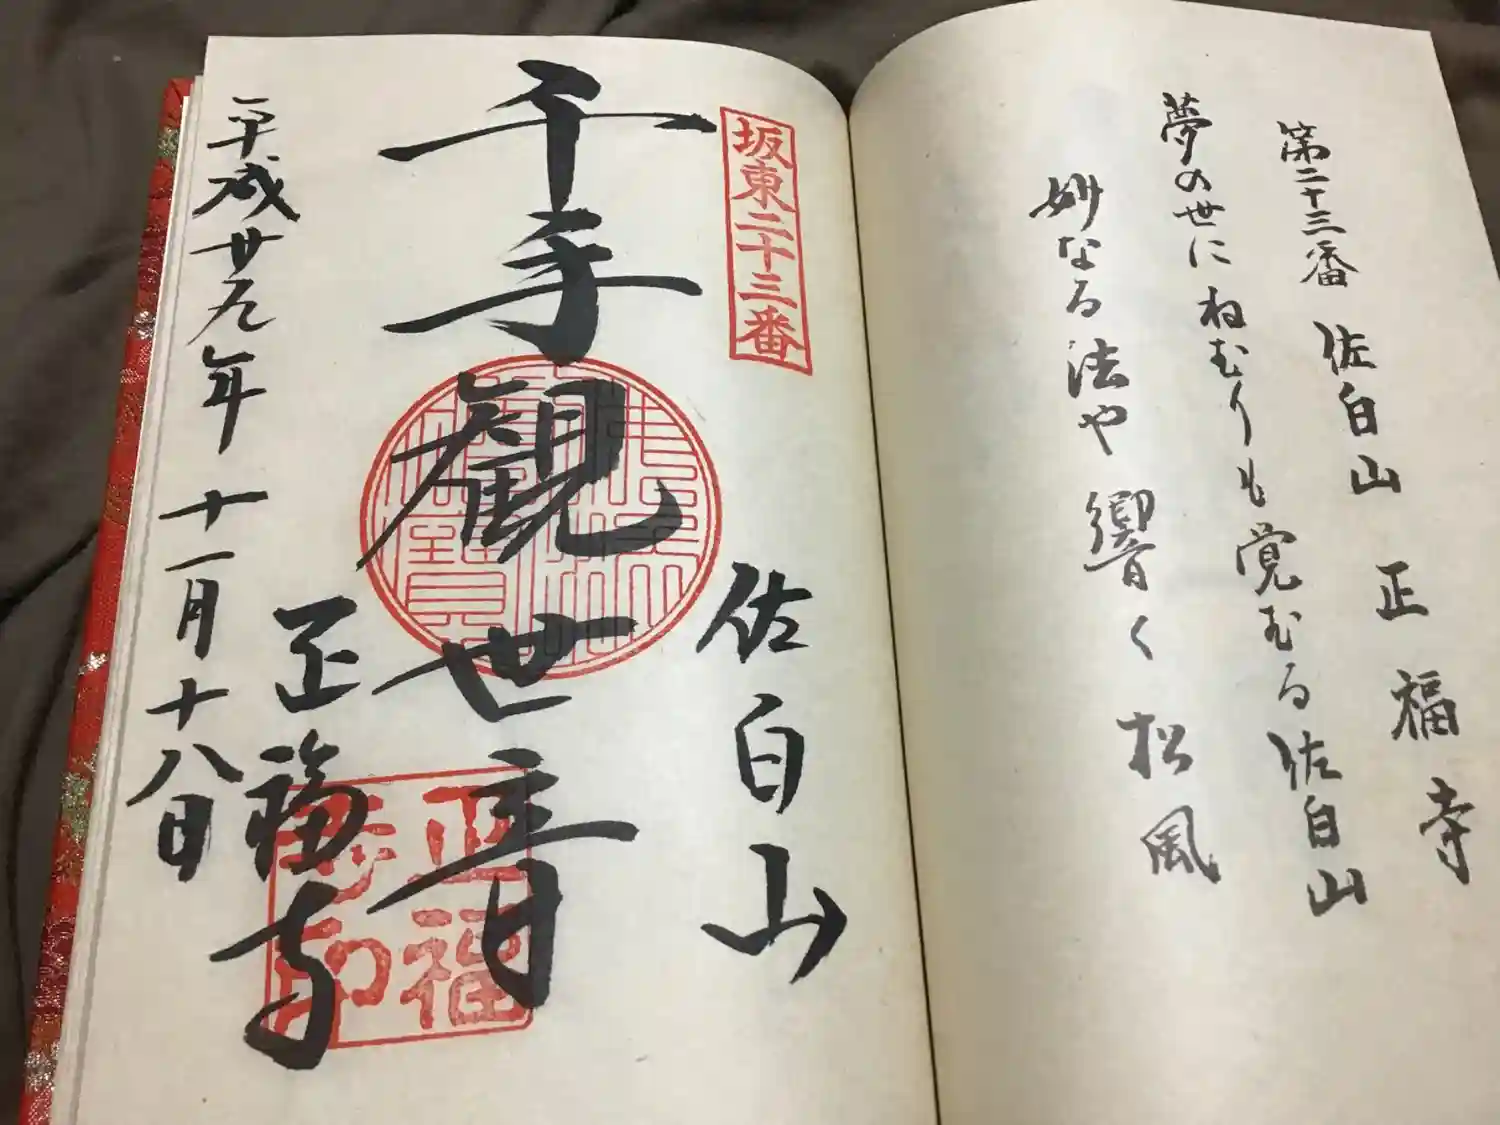 第二十三番 佐白山 正福寺
夢の世にねむりも覚むる佐白山
妙なる法や響く松風
坂東二十三番
佐白山
千手観世音
正福寺
平成廿九年十一月十八日
正福
寺印